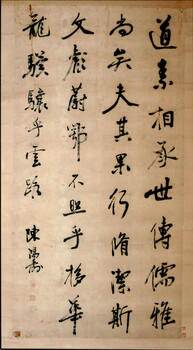 道素相承世傳儒雅
尚矣夫其果行脩潔斯
文彪蔚鄂不照乎移華
龍驥驤乎雲路 陳